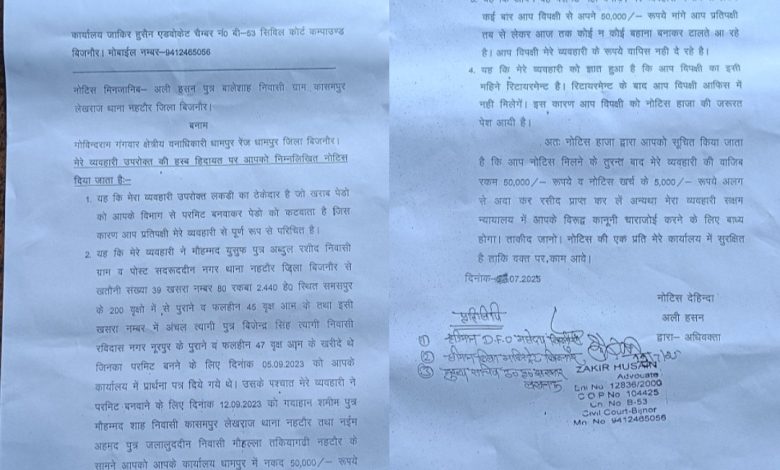 कार्यालय जाकिर हुसैन एडवोकेट चैम्बर नं० बी–53 सिविल कोर्ट कम्पाउण्ड
बिजनौर। मोबाईल नम्बर–9412465056
नोटिस मिनजानिब– अली हसन पुत्र बालेशाह निवासी ग्राम कासमपुर
लेखराज थाना नहटौर जिला बिजनौर।
बनाम
गोविन्दराम गंगवार क्षेत्रीय वनाधिकारी धामपुर रेंज धामपुर जिला बिजनौर।
मेरे व्यवहारी उपरोक्त की हस्ब हिदायत पर आपको निम्नलिखित नोटिस
दिया जाता है:–
1. यह कि मेरा व्यवहारी उपरोक्त लकडी का ठेकेदार है जो खराब पेडो
को आपके विभाग से परमिट बनवाकर पेडो को कटवाता है जिस
कारण आप प्रतिपक्षी मेरे व्यवहारी से पूर्ण रूप से परिचित है।
2. यह कि मेरे व्यवहारी ने मौहम्मद युसुफ पुत्र अब्दुल रशीद निवासी
ग्राम व पोस्ट सदरूददीन नगर थाना नहटौर जिला बिजनौर से
खतौनी संख्या 39 खसरा नम्बर 80 रकबा 2.440 हे0 स्थित समसपुर
के 200 वृक्षो में से पुराने व फलहीन 45 वृक्ष आम के तथा इसी
खसरा नम्बर में अंचल त्यागी पुत्र बिजेन्द्र सिंह त्यागी निवासी
रविदास नगर नूरपुर के पुराने व फलहीन 47 वृक्ष आम के खरीदे थे
जिनका परमिट बनने के लिए दिनांक 05.09.2023 को आपके
कार्यालय में प्रार्थना पत्र दिये गये थे। उसके पश्चात मेरे व्यवहारी ने
परमिट बनवाने के लिए दिनांक 12.09.2023 को गवाहान शमीम पुत्र
मौहम्मद शाह निवासी कासमपुर लेखराज थाना नहटौर तथा नईम
अहमद पुत्र जलालुददीन निवासी मौहल्ला तकियागढी नहटौर के
सामने आपको आपके कार्यालय धामपुर में नकद 50,000/– रूपये
कई बार आप विपक्षी से अपने 50,000/– रूपये मांगे आप प्रतिपक्षी
तब से लेकर आज तक कोई न कोई बहाना बनाकर टालते आ रहे
है। आप विपक्षी मेरे व्यवहारी के रूपये वापिस नही दे रहे है।
4. यह कि मेरे व्यवहारी को ज्ञात हुआ है कि आप विपक्षी का इसी
महिने रिटायरमेन्ट है। रिटायरमेन्ट के बाद आप विपक्षी आफिस में
नही मिलेगें। इस कारण आप विपक्षी को नोटिस हाजा की जरूरत
पेश आयी है।
अतः नोटिस हाजा द्वारा आपको सूचित किया जाता
है कि आप नोटिस मिलने के तुरन्त बाद मेरे व्यवहारी की वाजिब
रकम 50,000/– रूपये व नोटिस खर्च के 5,000/– रूपये अलग
से अदा कर रसीद प्राप्त कर लें अन्यथा मेरा व्यवहारी सक्षम
न्यायालय में आपके विरूद्व कानूनी चाराजोई करने के लिए बाध्य
होगा। ताकीद जानो। नोटिस की एक प्रति मेरे कार्यालय में सुरक्षित
है ताकि वक्त पर काम आये।
दिनांक– .07.2025
नोटिस देहिन्दा
अली हसन
द्वारा– अधिवक्ता
प्रतिलिपि
① D.F.O
②
③
ZAKIR HUSAIN
Advocate
No 12836/2000
C O P No 104425
B-53
Civil Court-Bijnor
Mn No 9412465056